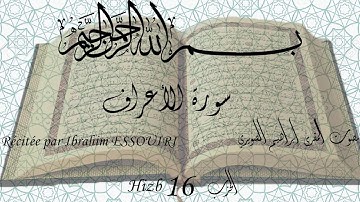 بسم الله الرحمن الرحيم
سورة الأعراف
Récitée par Ibrahim ESSOUIRI بصوت المقرئ إبراهيم الصويري
Hizb 16 الحزب